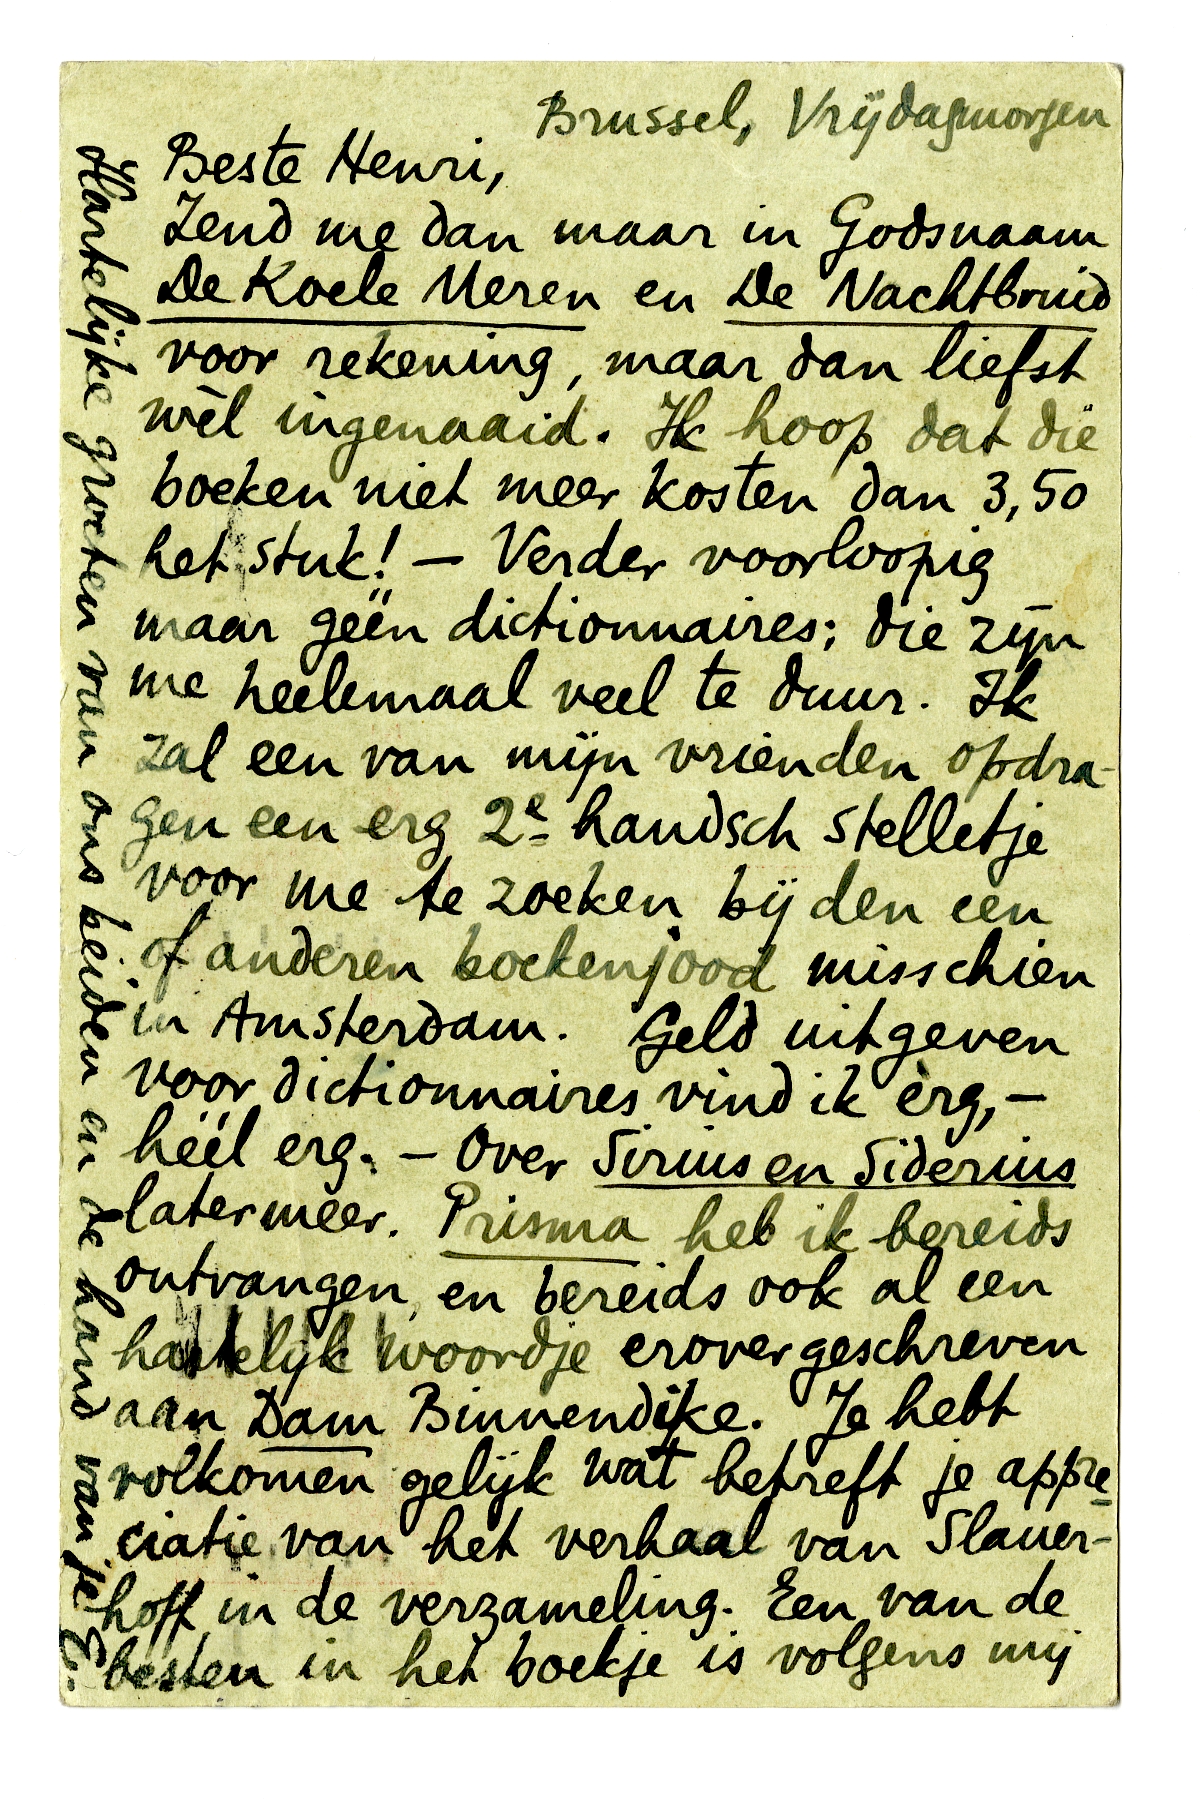 Brussel, Vrijdagmorgen
Beste Henri,
Zend me dan maar in Godsnaam
De Koele Meren en De Nachtbruid
voor rekening, maar dan liefst
wèl ingenaaid. Ik hoop dat die
boeken niet meer kosten dan 3,50
het stuk! — Verder voorloopig
maar géén dictionnaires; die zijn
me heelemaal veel te duur. Ik
zal een van mijn vrienden opdra-
gen een erg 2e handsch stelletje
voor me te zoeken bij den een
of anderen boekenjood misschien
in Amsterdam. Geld uitgeven
voor dictionnaires vind ik èrg, —
héél erg. — Over Sirius en Siderius
later meer. Prisma heb ik bereids
ontvangen, en bereids ook al een
hartelijk woordje erover geschreven
aan Dam Binnendijke. Je hebt
volkomen gelijk wat betreft je appre-
ciatie van het verhaal van Slauer-
hoff in de verzameling. Een van de
besten in het boekje is volgens mij
Hartelijke groeten van ons beiden en de hand van je E.